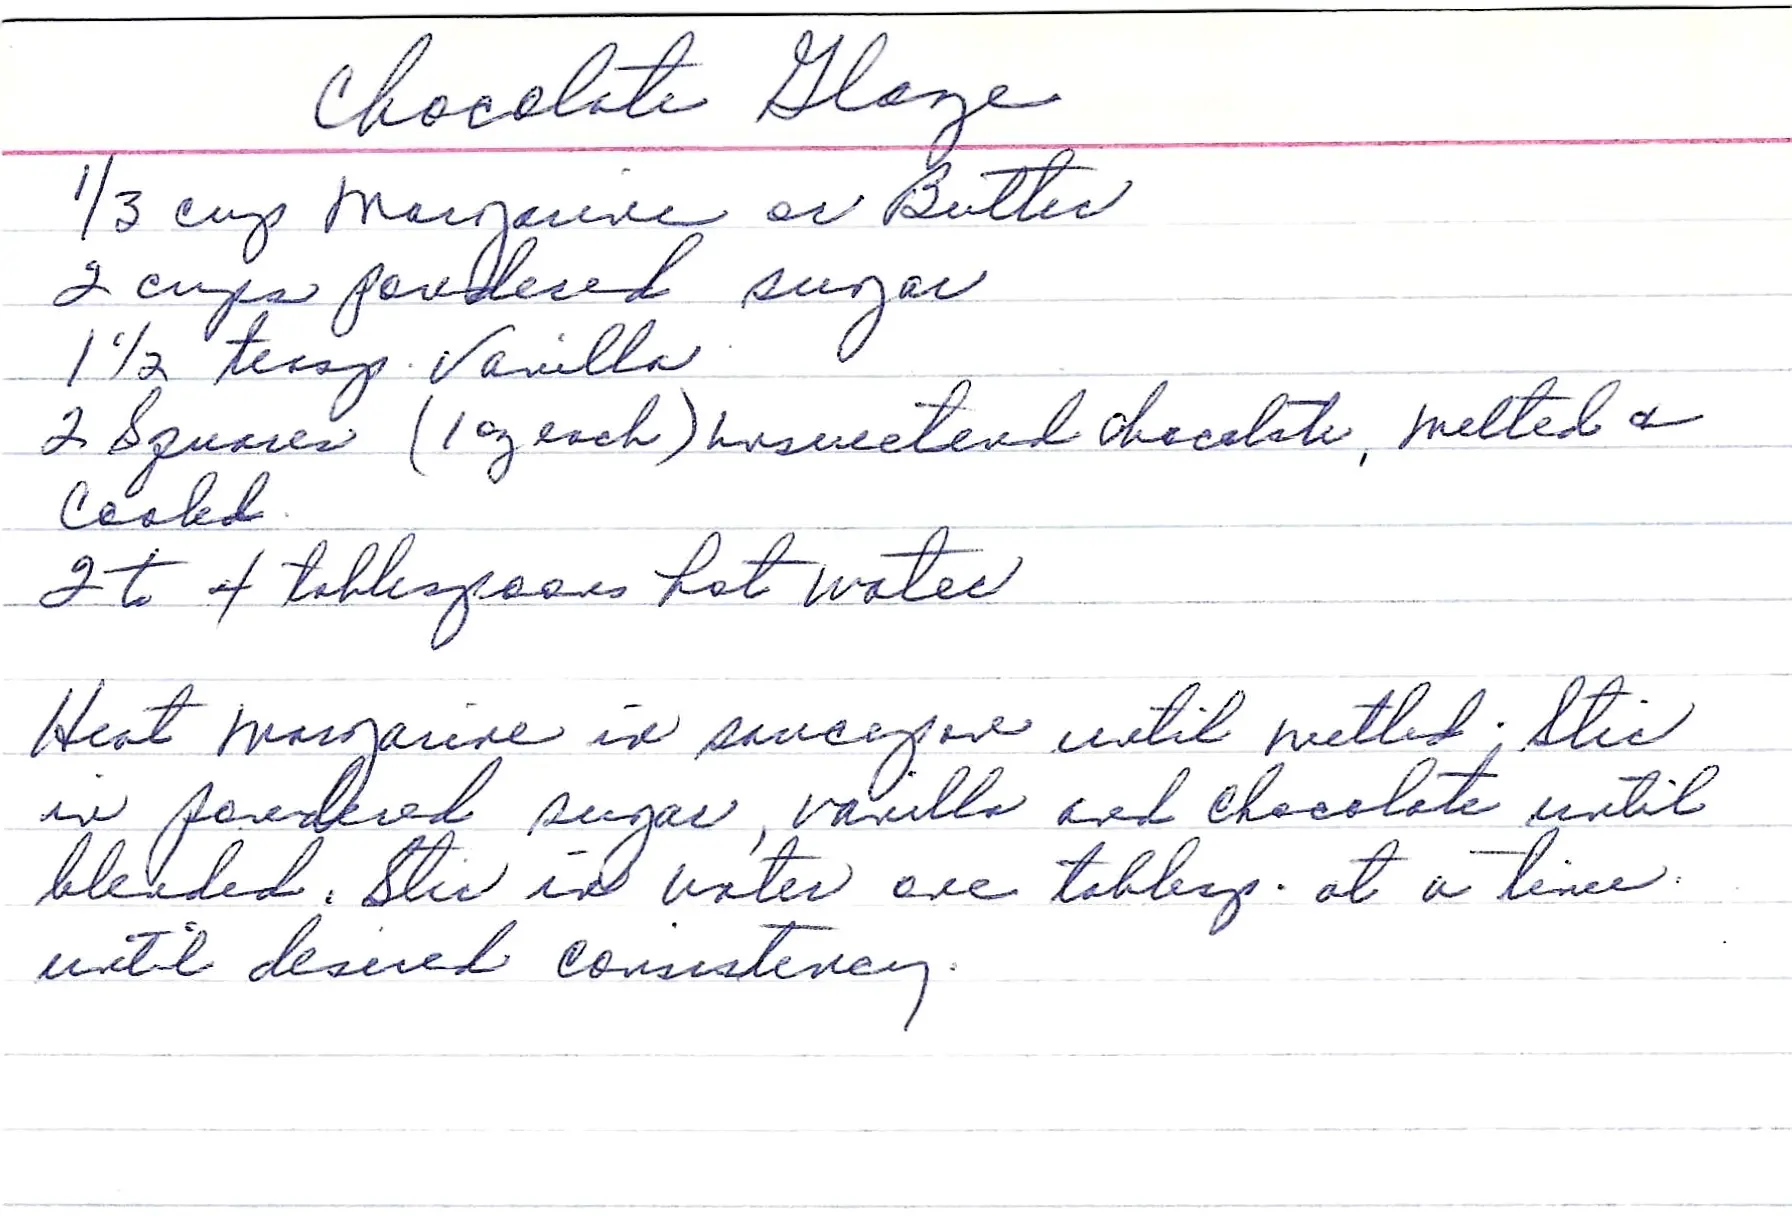 Chocolate Glaze
1/3 cup Margarine or Butter
2 cups powdered sugar
1 1/2 teasp. Vanilla
2 Squares (1 oz each) unsweetend chocolate, melted &
Cooled.
2 to 4 tablespoons hot water
Heat margarine in saucepan until melted; Stir
in powdered sugar, vanilla and chocolate until
blended. Stir in water one tablesp. at a time
until desired consistency.